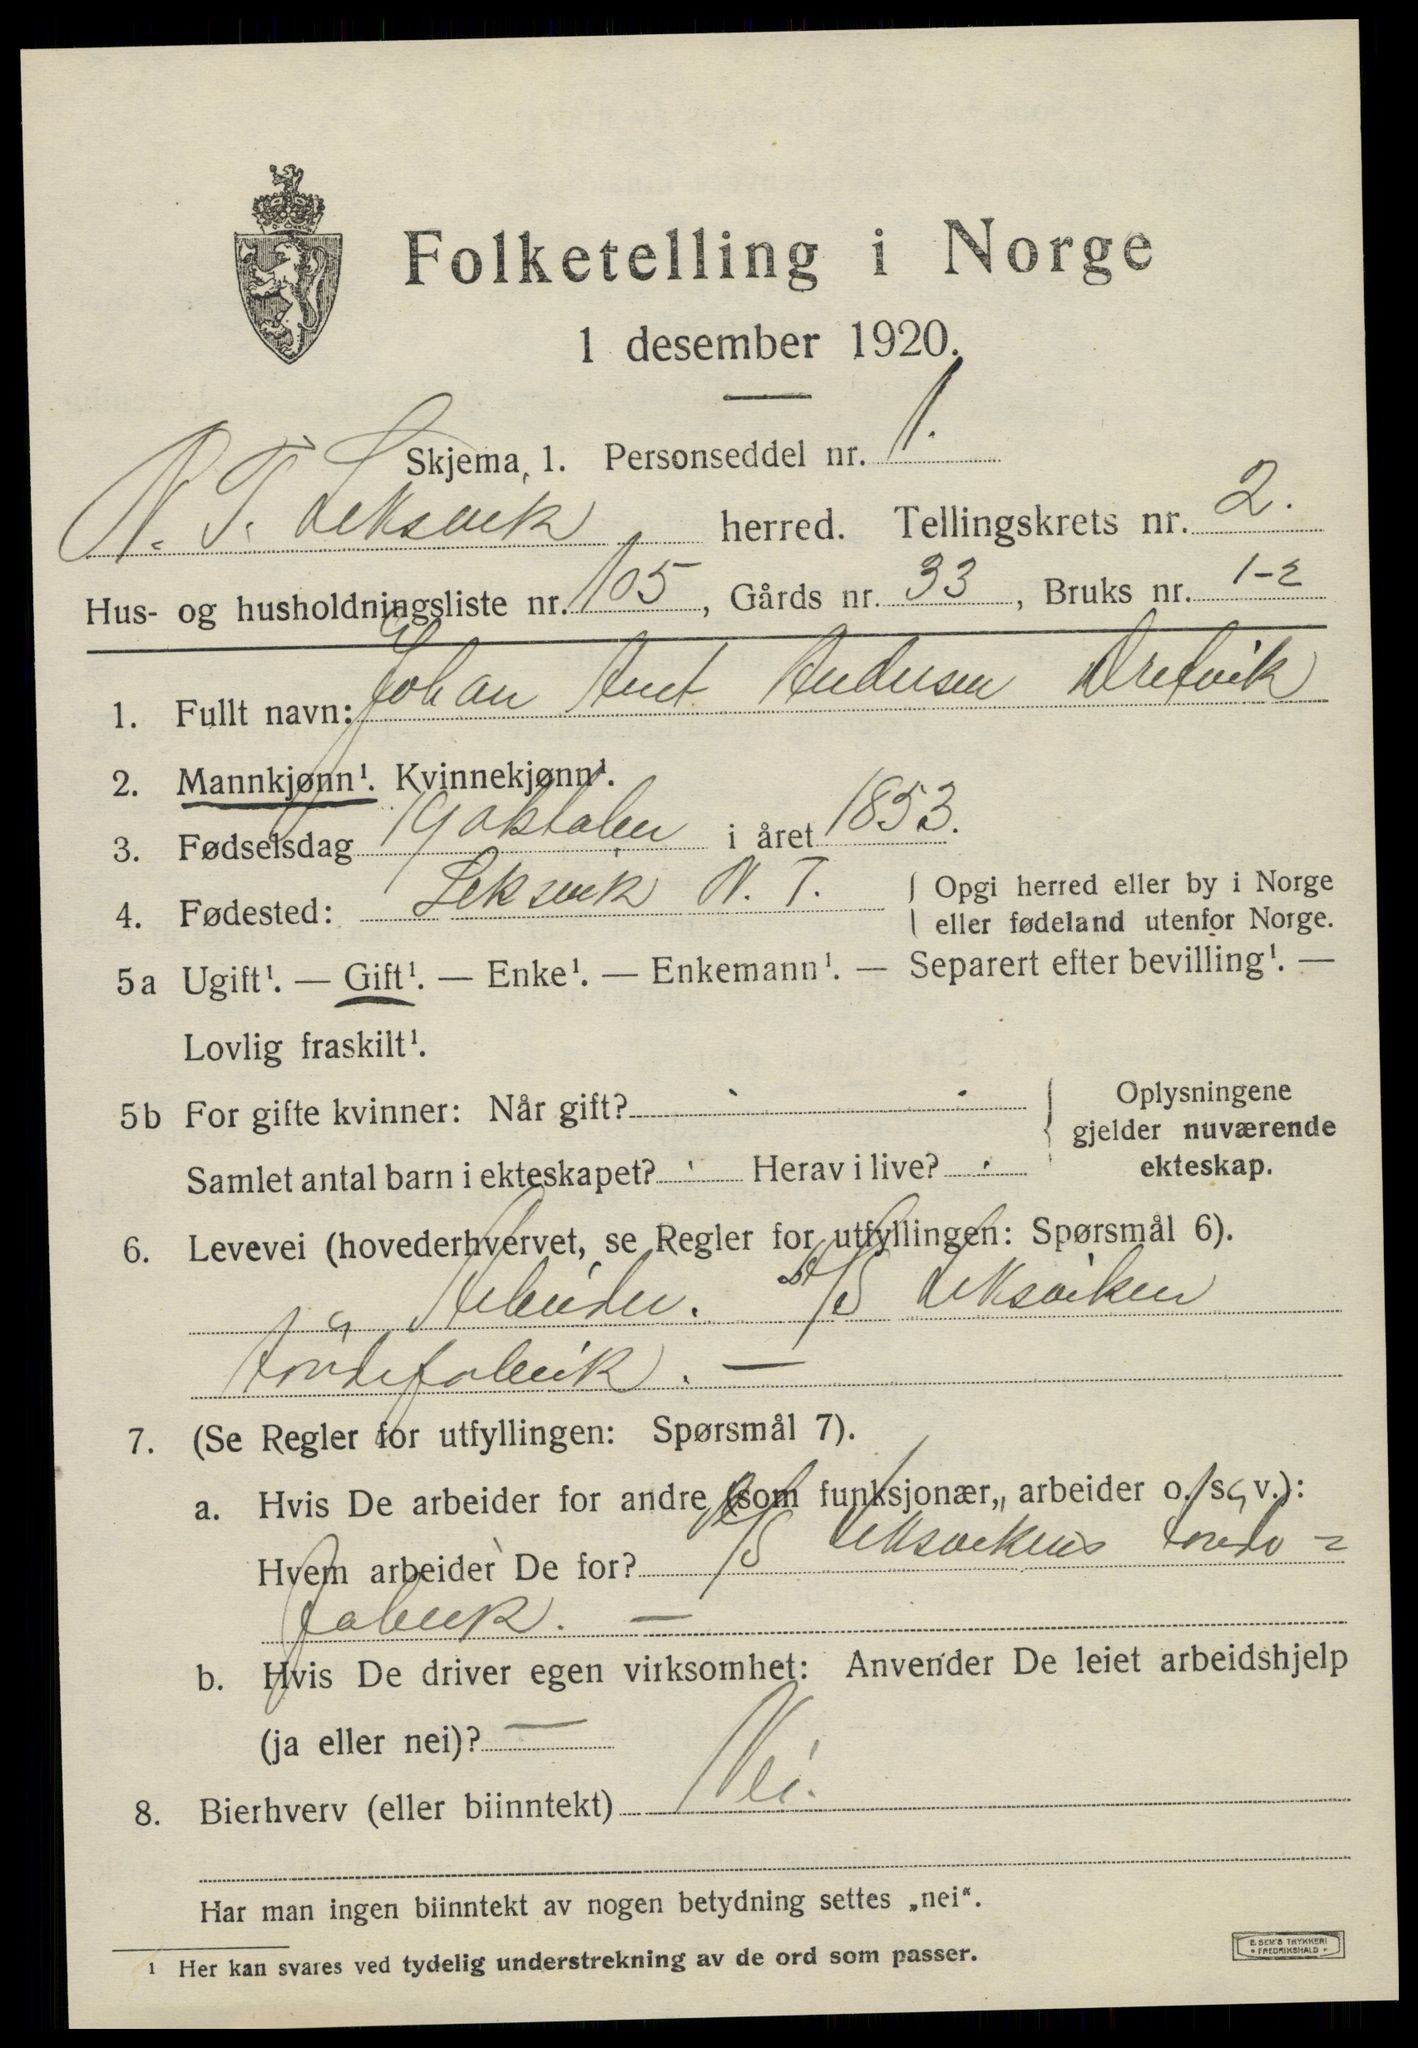 Folketelling i Norge
1 desember 1920.
Skjema 1. Personseddel nr. 1.
N. T. Leksvik herred. Tellingskrets nr. 2.
Hus- og husholdningsliste nr. 105, Gårds nr. 33, Bruks nr. 1-2
1. Fullt navn: Johan Arnt Andersen Dretvik
2. Mannkjønn¹. Kvinnekjønn¹.
3. Fødselsdag 19 oktober i året 1853.
4. Fødested: Leksvik N. T.
Opgi herred eller by i Norge
eller fødeland utenfor Norge.
5a Ugift¹. — Gift¹. — Enke¹. — Enkemann¹. — Separert efter bevilling¹. —
Lovlig fraskilt¹.
5b For gifte kvinner: Når gift?
Samlet antal barn i ekteskapet? Herav i live?
Oplysningene
gjelder nuværende
ekteskap.
6. Levevei (hovederhvervet, se Regler for utfyllingen: Spørsmål 6).
Arbeider. A/S Leksviken
töndefabrik. —
7. (Se Regler for utfyllingen: Spørsmål 7).
a. Hvis De arbeider for andre (som funksjonær, arbeider o. s. v.):
Hvem arbeider De for? A/S Leksvikens tönde=
fabrik. —
b. Hvis De driver egen virksomhet: Anvender De leiet arbeidshjelp
(ja eller nei)? —
8. Bierhverv (eller biinntekt) Nei.
Har man ingen biinntekt av nogen betydning settes „nei“.
¹ Her kan svares ved tydelig understrekning av de ord som passer.
E. SEM'S TRYKKERI
FREDRIKSHALD